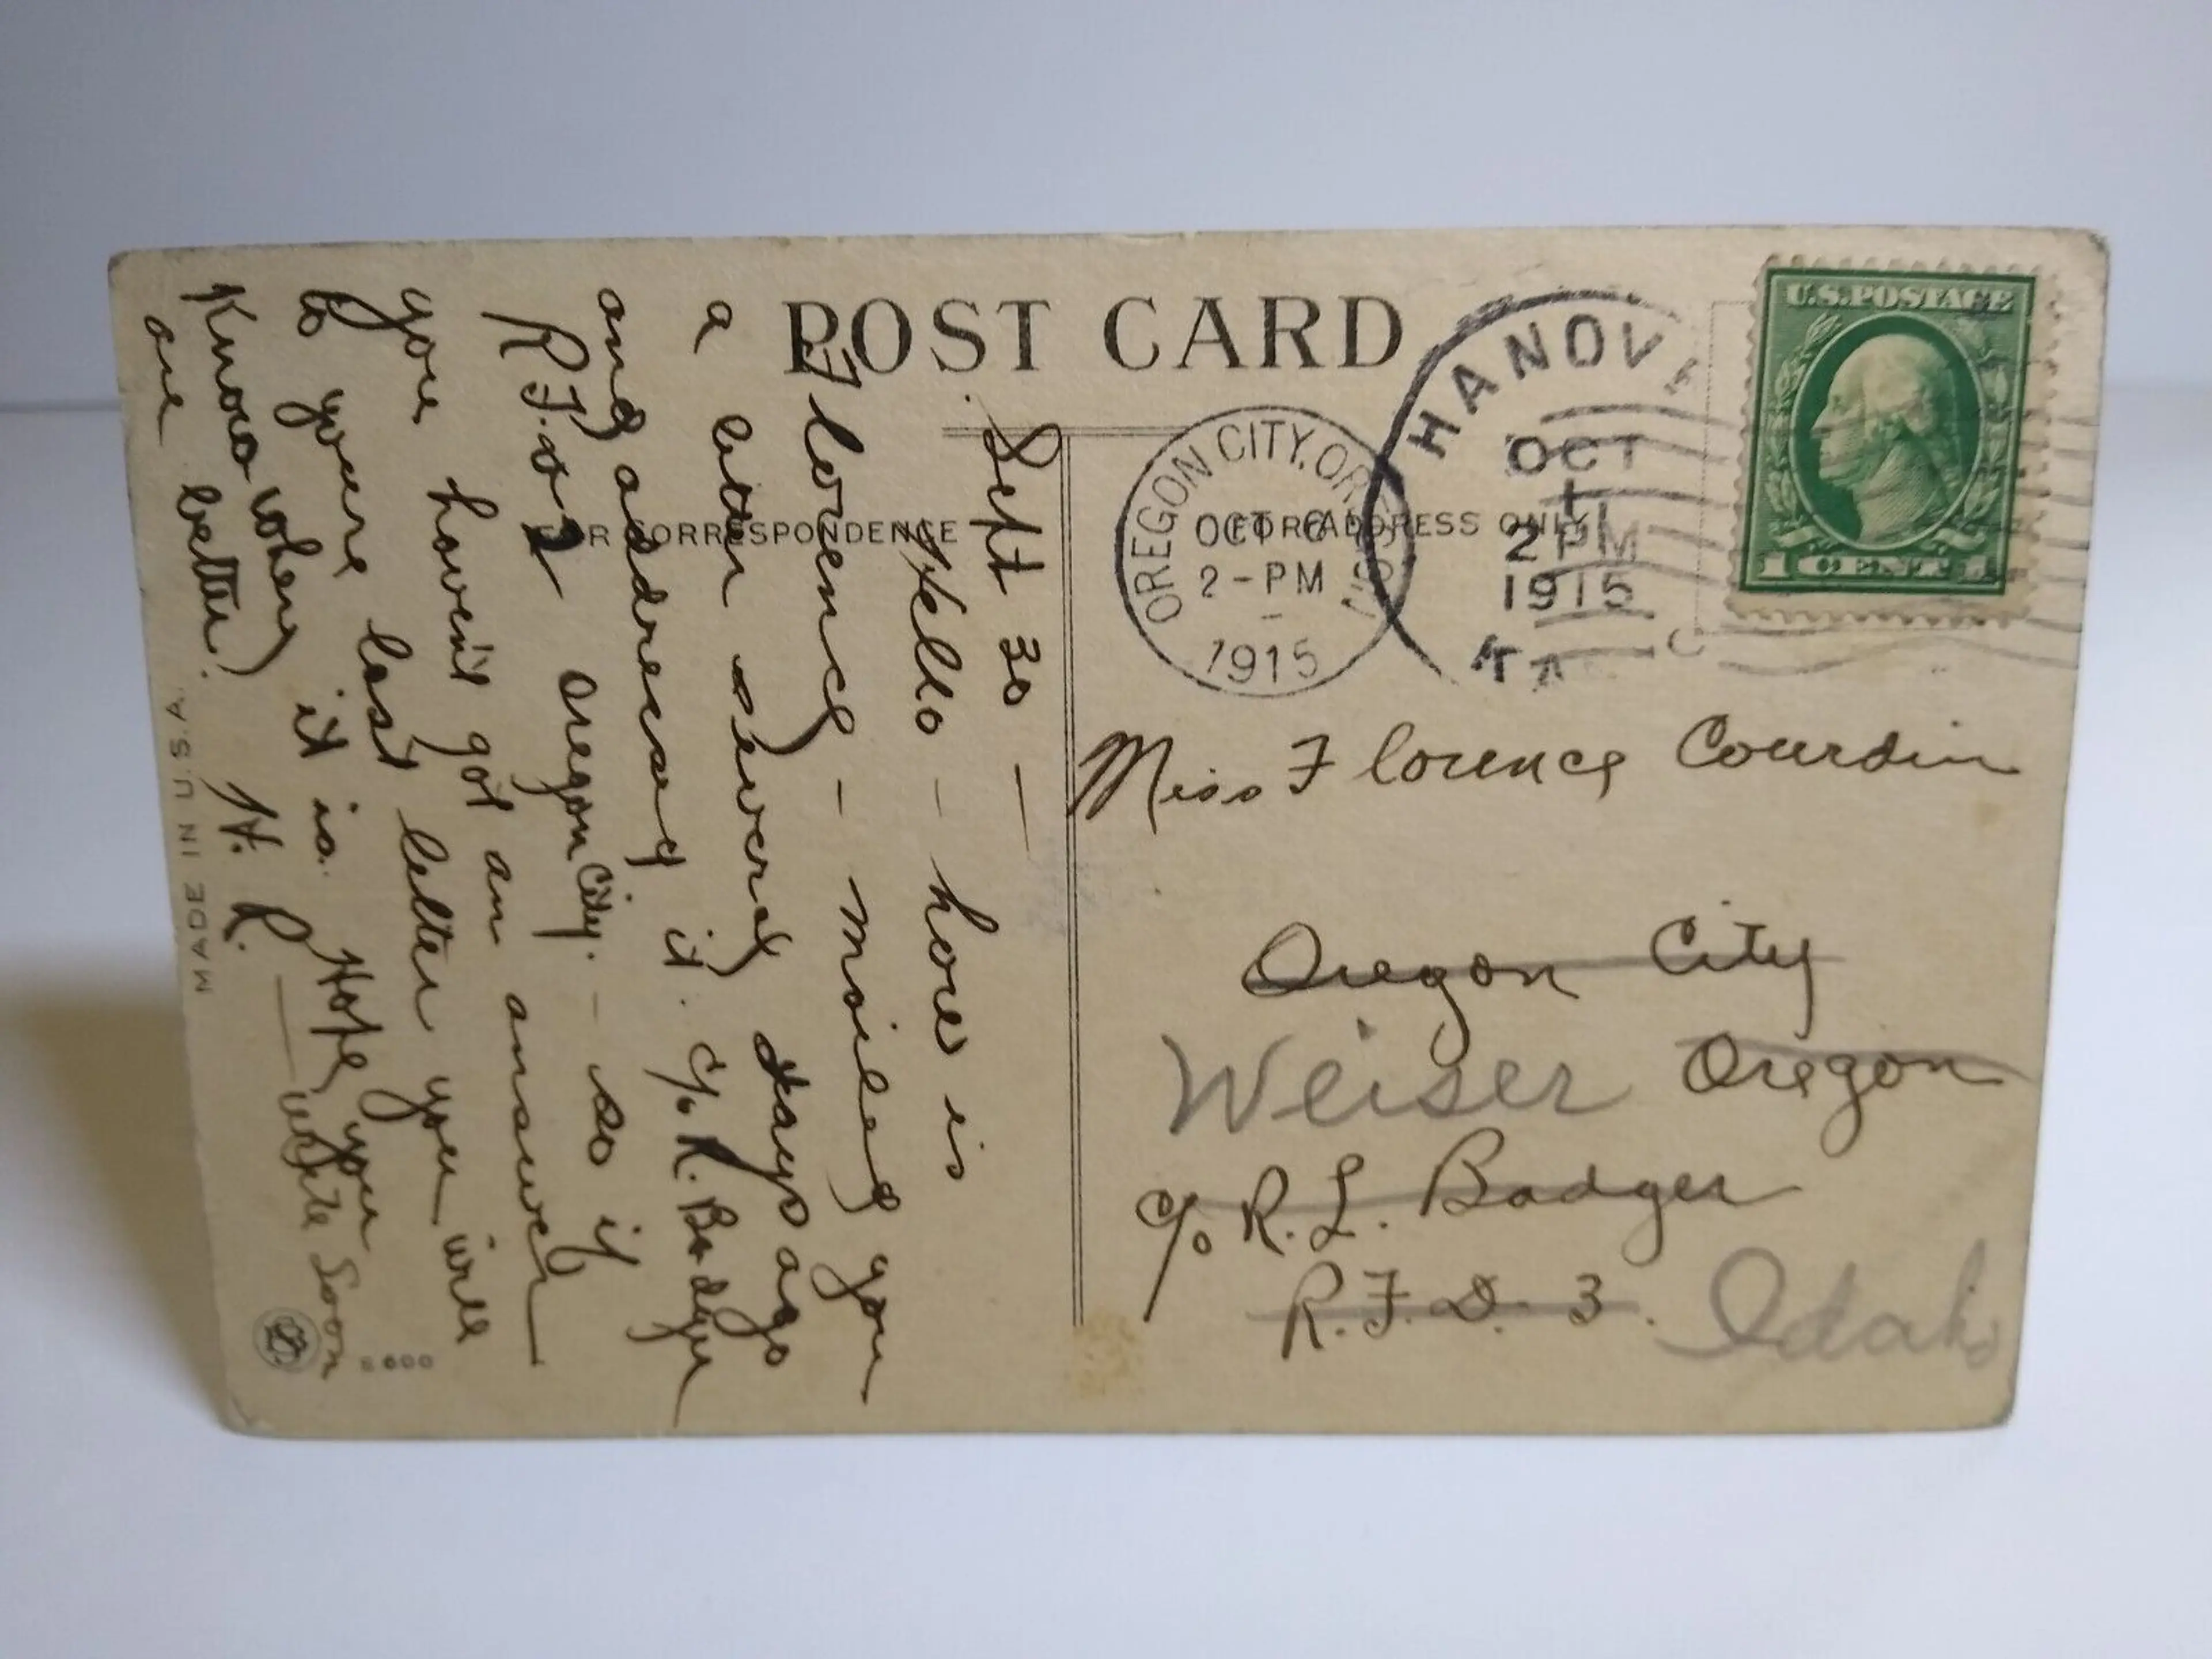 POST CARD
FOR CORRESPONDENCE
FOR ADDRESS ONLY
U.S. POSTAGE
1 CENT 1
HANOV
OCT
1
2 PM
1915
KA
OREGON CITY, OR
OCT 6
2-PM
1915
Sept 30 —
Hello - how is
Florence - mailed you
a letter several days ago
and addressed it. c/o R. Badger
R.F.D 2 Oregon City. - so if
you haven't got an answer
to your last letter you will
know where it is. Hope you
are better.
H. R. — write soon
Miss Florence Courdin
Oregon City
Oregon
Weiser
c/o R. L. Badger
R. F. D. 3.
Idaho
MADE IN U.S.A.